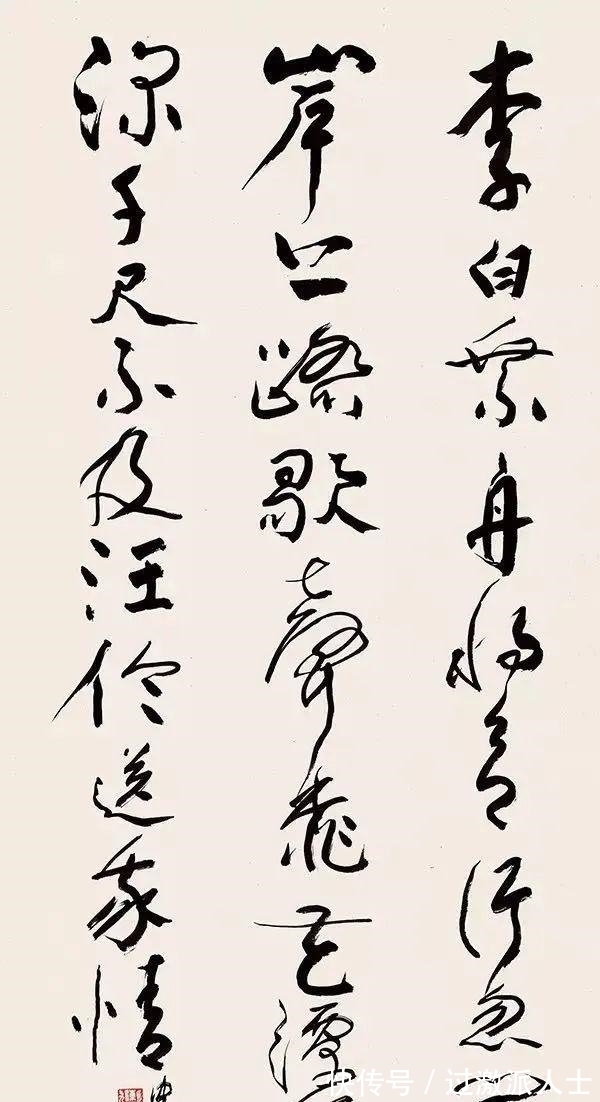 李白乘舟將欲行忽
岸上踏歌聲桃花潭
深千尺不及汪倫送我情
快传号 / 过激派人士